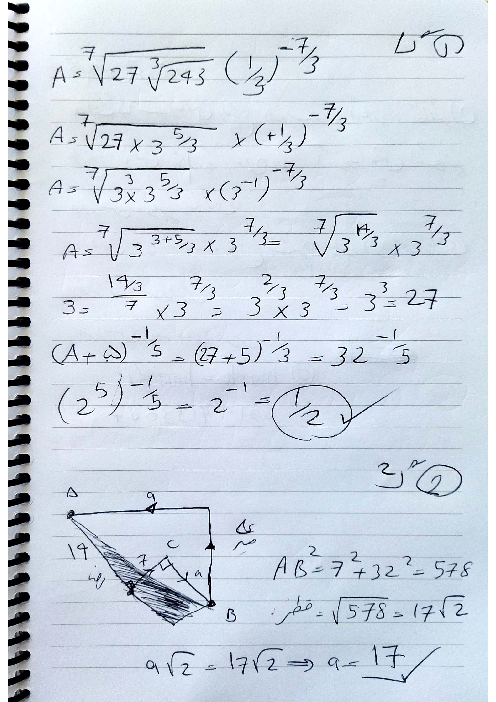 ①
A = ⁷√(27 ³√243) (1/3)^(-7/3)
A = ⁷√(27 × 3^(5/3)) × (+1/3)^(-7/3)
A = ⁷√(3^3 × 3^(5/3)) × (3^-1)^(-7/3)
A = ⁷√(3^(3+5/3)) × 3^(7/3) = ⁷√(3^(14/3)) × 3^(7/3)
3 = (14/3)/7 × 3^(7/3) = 3^(2/3) × 3^(7/3) - 3^3 = 27
(A + ۵)^(-1/5) = (27+5)^(-1/3) = 32^(-1/5)
(2^5)^(-1/5) = 2^-1 = 1/2
②
A a
14 7 C a
B
AB^2 = 7^2 + 32^2 = 578
قطر: = √578 = 17√2
a√2 = 17√2 ⇒ a = 17